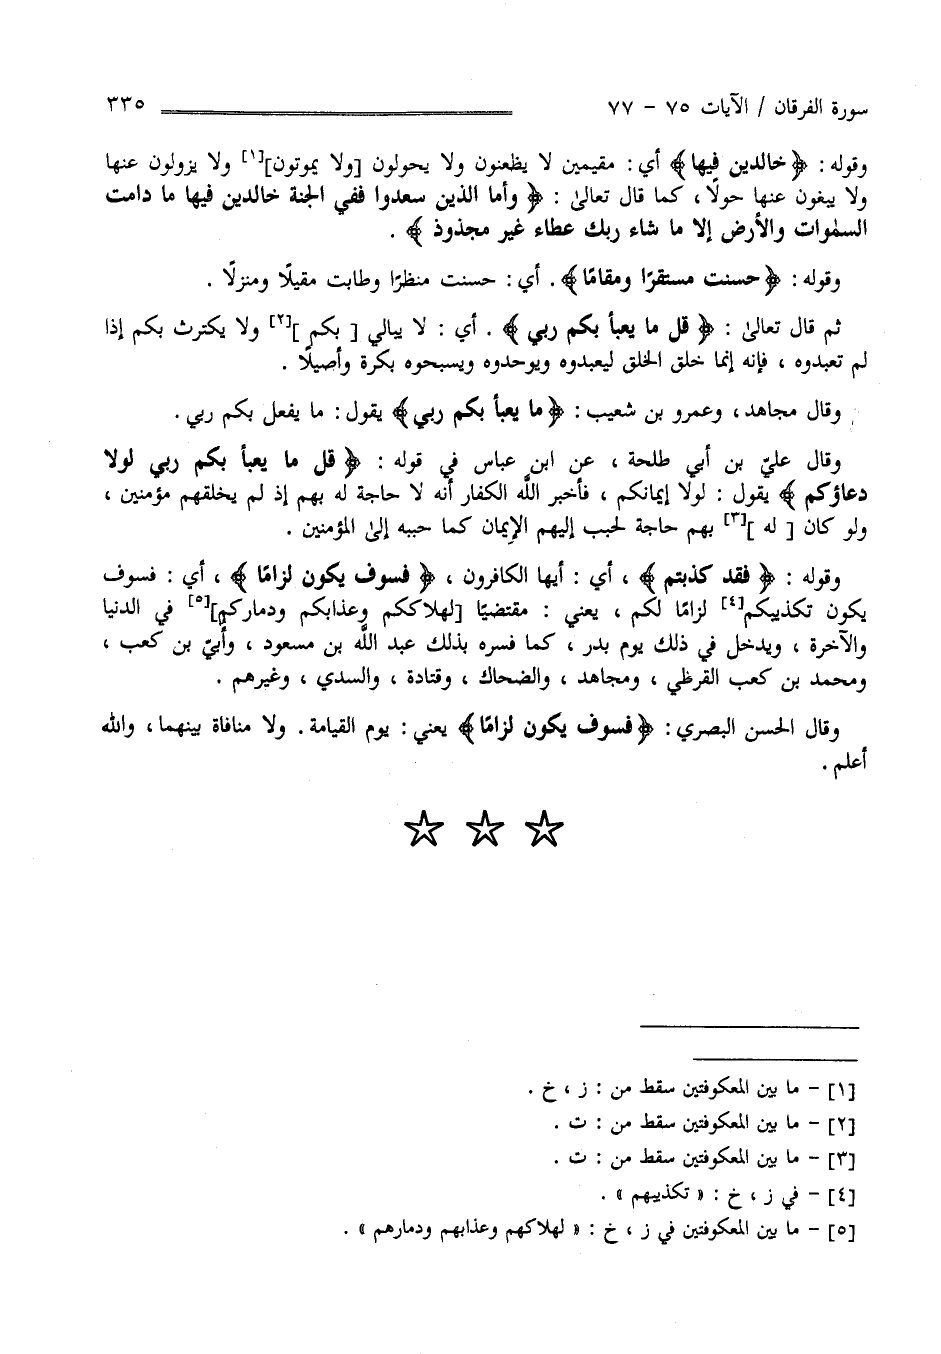 سورة الفرقان / الآيات ٧٥ – ٧٧ ٣٣٥
وقوله : ﴿ خالدين فيها ﴾ أي : مقيمين لا يظعنون ولا يحولون [ولا يموتون][١] ولا يزولون عنها
ولا يبغون عنها حولًا ، كما قال تعالىٰ : ﴿ وأما الذين سعدوا ففي الجنة خالدين فيها ما دامت
السمٰوات والأرض إلا ما شاء ربك عطاء غير مجذوذ ﴾ .
وقوله : ﴿ حسنت مستقرًا ومقامًا ﴾ . أي : حسنت منظرًا وطابت مقيلًا ومنزلًا .
ثم قال تعالىٰ : ﴿ قل ما يعبأ بكم ربي ﴾ . أي : لا يبالي [ بكم ][٢] ولا يكترث بكم إذا
لم تعبدوه ، فإنه إنما خلق الخلق ليعبدوه ويوحدوه ويسبحوه بكرة وأصيلًا .
وقال مجاهد ، وعمرو بن شعيب : ﴿ ما يعبأ بكم ربي ﴾ يقول : ما يفعل بكم ربي .
وقال عليّ بن أبي طلحة ، عن ابن عباس في قوله : ﴿ قل ما يعبأ بكم ربي لولا
دعاؤكم ﴾ يقول : لولا إيمانكم ، فأخبر اللَّه الكفار أنه لا حاجة له بهم إذ لم يخلقهم مؤمنين ،
ولو كان [ له ][٣] بهم حاجة لحبب إليهم الإيمان كما حببه إلىٰ المؤمنين .
وقوله : ﴿ فقد كذبتم ﴾ ، أي : أيها الكافرون ، ﴿ فسوف يكون لزامًا ﴾ ، أي : فسوف
يكون تكذيبكم[٤] لزامًا لكم ، يعني : مقتضيًا [لهلاككم وعذابكم ودماركم][٥] في الدنيا
والآخرة ، ويدخل في ذلك يوم بدر ، كما فسره بذلك عبد اللَّه بن مسعود ، وأبيّ بن كعب ،
ومحمد بن كعب القرظي ، ومجاهد ، والضحاك ، وقتادة ، والسدي ، وغيرهم .
وقال الحسن البصري : ﴿ فسوف يكون لزامًا ﴾ يعني : يوم القيامة . ولا منافاة بينهما ، والله
أعلم .
[١] – ما بين المعكوفتين سقط من : ز ، خ .
[٢] – ما بين المعكوفتين سقط من : ت .
[٣] – ما بين المعكوفتين سقط من : ت .
[٤] – في ز ، خ : « تكذيبهم » .
[٥] – ما بين المعكوفتين في ز ، خ : « لهلاكهم وعذابهم ودمارهم » .